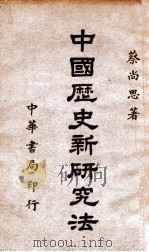 蔡尚思著
中國歷史新研究法
中華書局印行
www.towowo.com